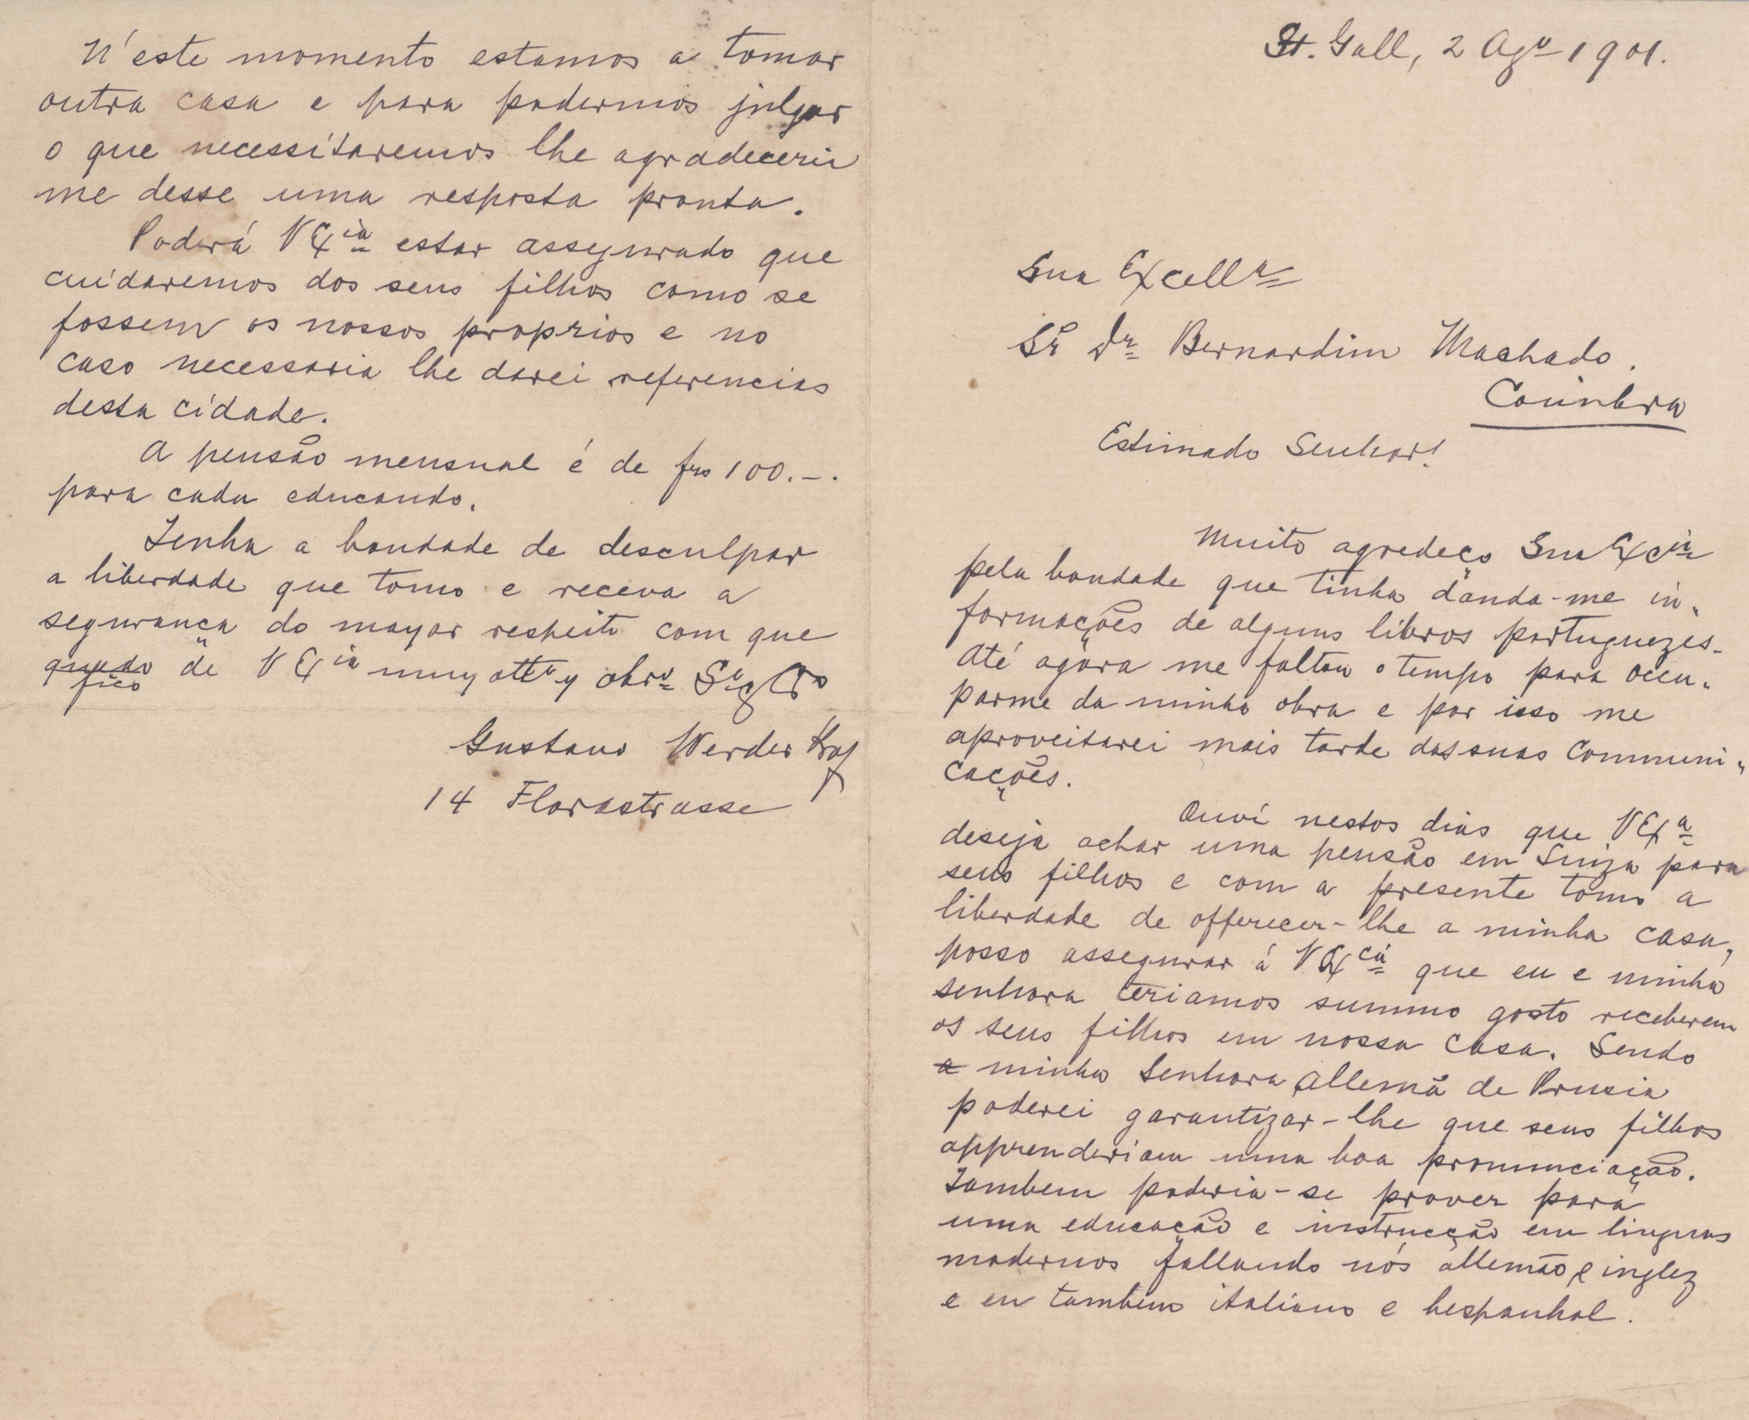 St. Gall, 2 Ago 1901.
Sua Excella
Sr Dr Bernardim Machado.
Coimbra
Estimado Senhor!
Muito agredeço Sua Excia
pela bondade que tinha dando-me in-
formações de alguns libros portuguezes.
Até agora me faltou o tempo para occu-
parme da minha obra e por isso me
aproveitarei mais tarde das suas communi-
cações.
Ouvi nestos dias que V Exa
deseja achar uma pensão em Suiza para
seus filhos e com a presente tomo a
liberdade de offerecer-lhe a minha casa,
posso assegurar á V Excia que eu e minha
senhora teriamos summo gosto receberem
os seus filhos em nossa casa. Sendo
a minha Senhora allemã de Prusia
poderei garantizar-lhe que seus filhos
apprenderiam uma boa pronunciação.
Tambem poderia-se prover para
uma educação e instrucção em linguas
modernos fallando nós allemão e inglez
e eu tambem italiano e hespanhol.
N'este momento estamos a tomar
outra casa e para podermos julgar
o que necessitaremos lhe agradeceria
me desse uma resposta pronta.
Poderá V Exia estar assegurado que
cuidaremos dos seus filhos como se
fossem os nossos proprios e no
caso necessario lhe darei referencias
desta cidade.
A pensão mensual é de frs 100.-.
para cada educando.
Tenha a bondade de desculpar
a liberdade que tomo e receva a
segurança do mayor respeito com que
quedo de V Exia muy atto y obro
fico
Gustavo Werder
14 Florastrasse